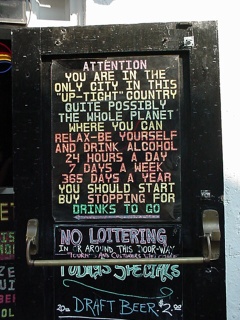 ATTENTION
YOU ARE IN THE
ONLY CITY IN THIS
"UP-TIGHT" COUNTRY
QUITE POSSIBLY
THE WHOLE PLANET
WHERE YOU CAN
RELAX-BE YOURSELF
AND DRINK ALCOHOL
24 HOURS A DAY
7 DAYS A WEEK
365 DAYS A YEAR
YOU SHOULD START
BUY STOPPING FOR
DRINKS TO GO
NO LOITERING
IN OR AROUND THIS DOOR-WAY
AND CUSTOMERS
TODAYS SPECIALS
20oz DRAFT BEER $2.00